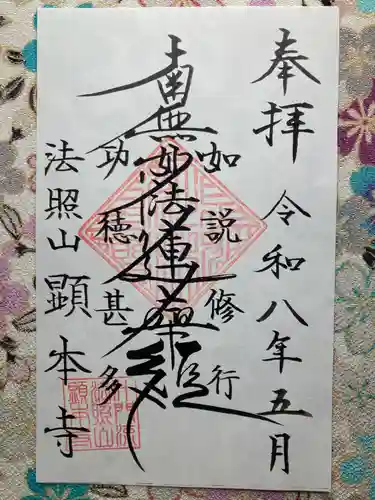 奉拝
令和八年五月
如説修行
南無妙法蓮華経
功徳甚多
法照山
顕本寺